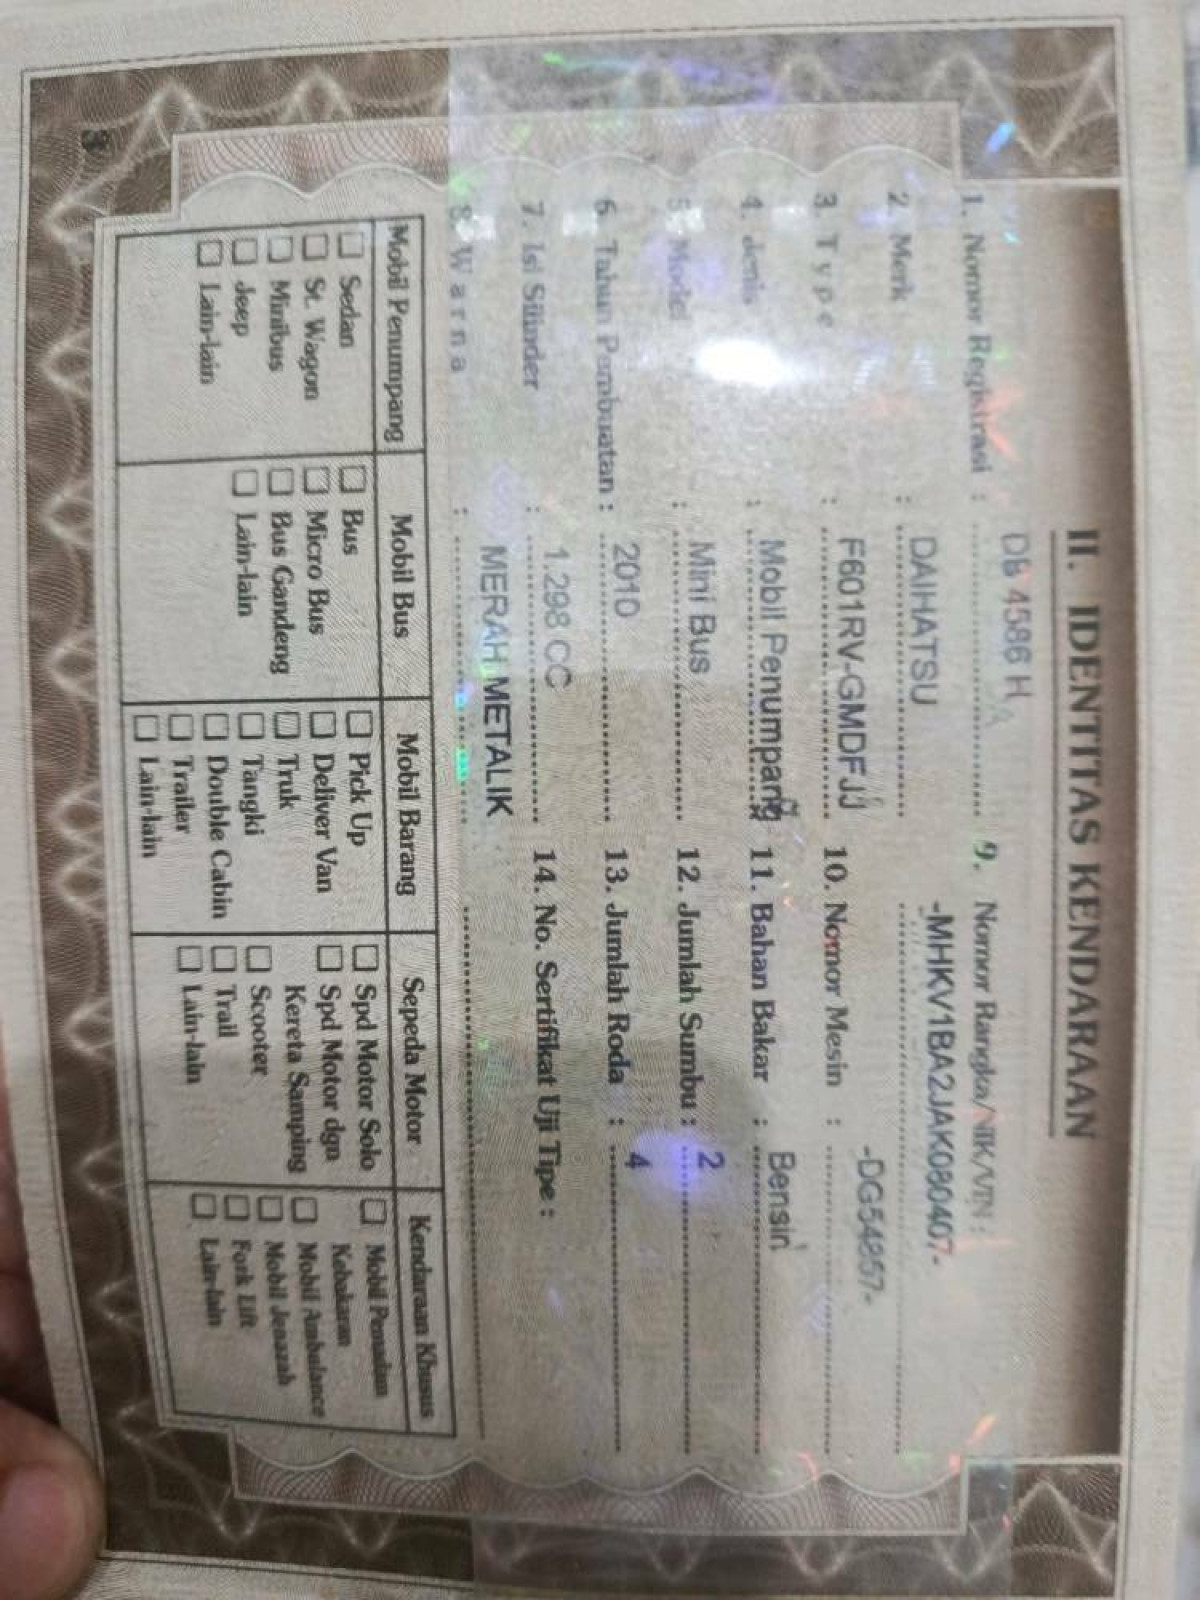 II. IDENTITAS KENDARAAN
1. Nomor Registrasi : DB 4586 H
2. Merk : DAIHATSU
3. Type : F601RV-GMDFJJ
4. Jenis : Mobil Penumpang
5. Model : Mini Bus
6. Tahun Pembuatan : 2010
7. Isi Silinder : 1.298 CC
8. Warna : MERAH METALIK
9. Nomor Rangka/NIK/VIN :
-MHKV1BA2JAK080407-
10. Nomor Mesin : -DG54857-
11. Bahan Bakar : Bensin
12. Jumlah Sumbu : 2
13. Jumlah Roda : 4
14. No. Sertifikat Uji Tipe :
Mobil Penumpang
Sedan
St. Wagon
Minibus
Jeep
Lain-lain
Mobil Bus
Bus
Micro Bus
Bus Gandeng
Lain-lain
Mobil Barang
Pick Up
Deliver Van
Truk
Tangki
Double Cabin
Trailer
Lain-lain
Sepeda Motor
Spd Motor Solo
Spd Motor dgn
Kereta Samping
Scooter
Trail
Lain-lain
Kendaraan Khusus
Mobil Pemadam
Kebakaran
Mobil Ambulance
Mobil Jenazah
Fork Lift
Lain-lain
3